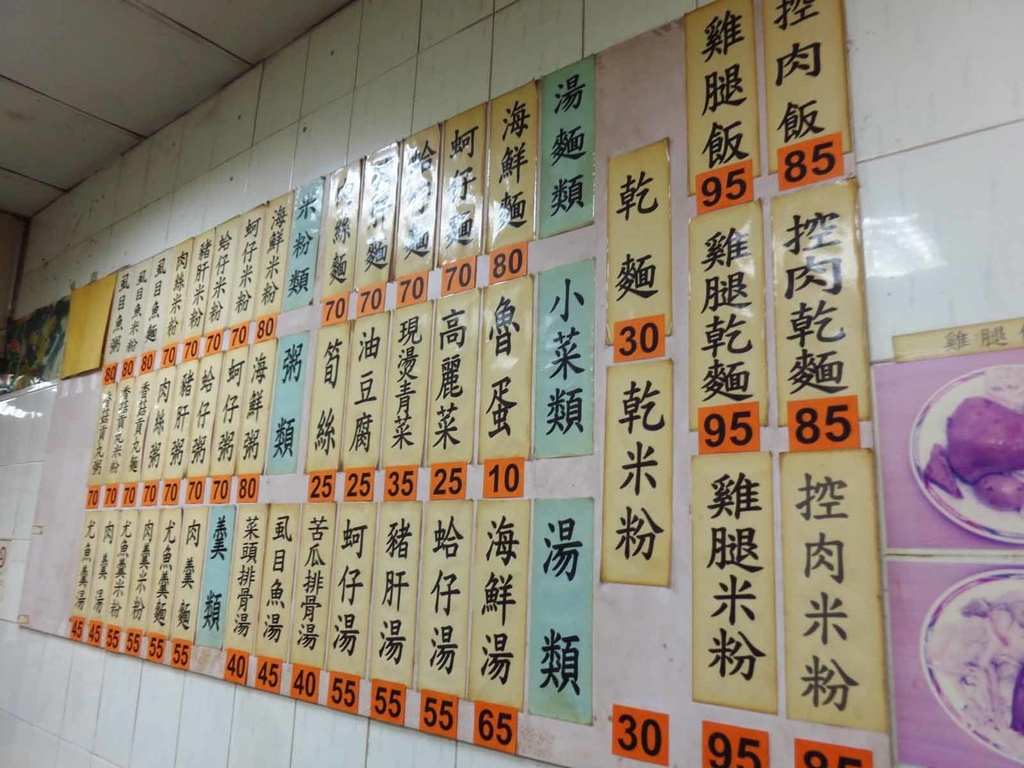 控肉飯
85
控肉乾麵
85
控肉米粉
85
雞腿飯
95
雞腿乾麵
95
雞腿米粉
95
乾麵
30
乾米粉
30
湯麵類
海鮮麵
80
蚵仔麵
70
蛤仔麵
70
豬肝麵
70
肉絲麵
70
米粉類
海鮮米粉
80
蚵仔米粉
70
蛤仔米粉
70
豬肝米粉
70
肉絲米粉
70
虱目魚麵
80
虱目魚米粉
80
虱目魚粥
80
小菜類
魯蛋
10
高麗菜
25
現燙青菜
35
油豆腐
25
筍絲
25
粥類
海鮮粥
80
蚵仔粥
70
蛤仔粥
70
豬肝粥
70
肉絲粥
70
香菇貢丸麵
70
香菇貢丸米粉
70
香菇貢丸粥
70
湯類
海鮮湯
65
蛤仔湯
55
豬肝湯
55
蚵仔湯
55
苦瓜排骨湯
40
虱目魚湯
45
菜頭排骨湯
40
羹類
肉羹麵
55
尤魚羹麵
55
肉羹米粉
55
尤魚羹米粉
55
肉羹湯
45
尤魚羹湯
45
雞腿